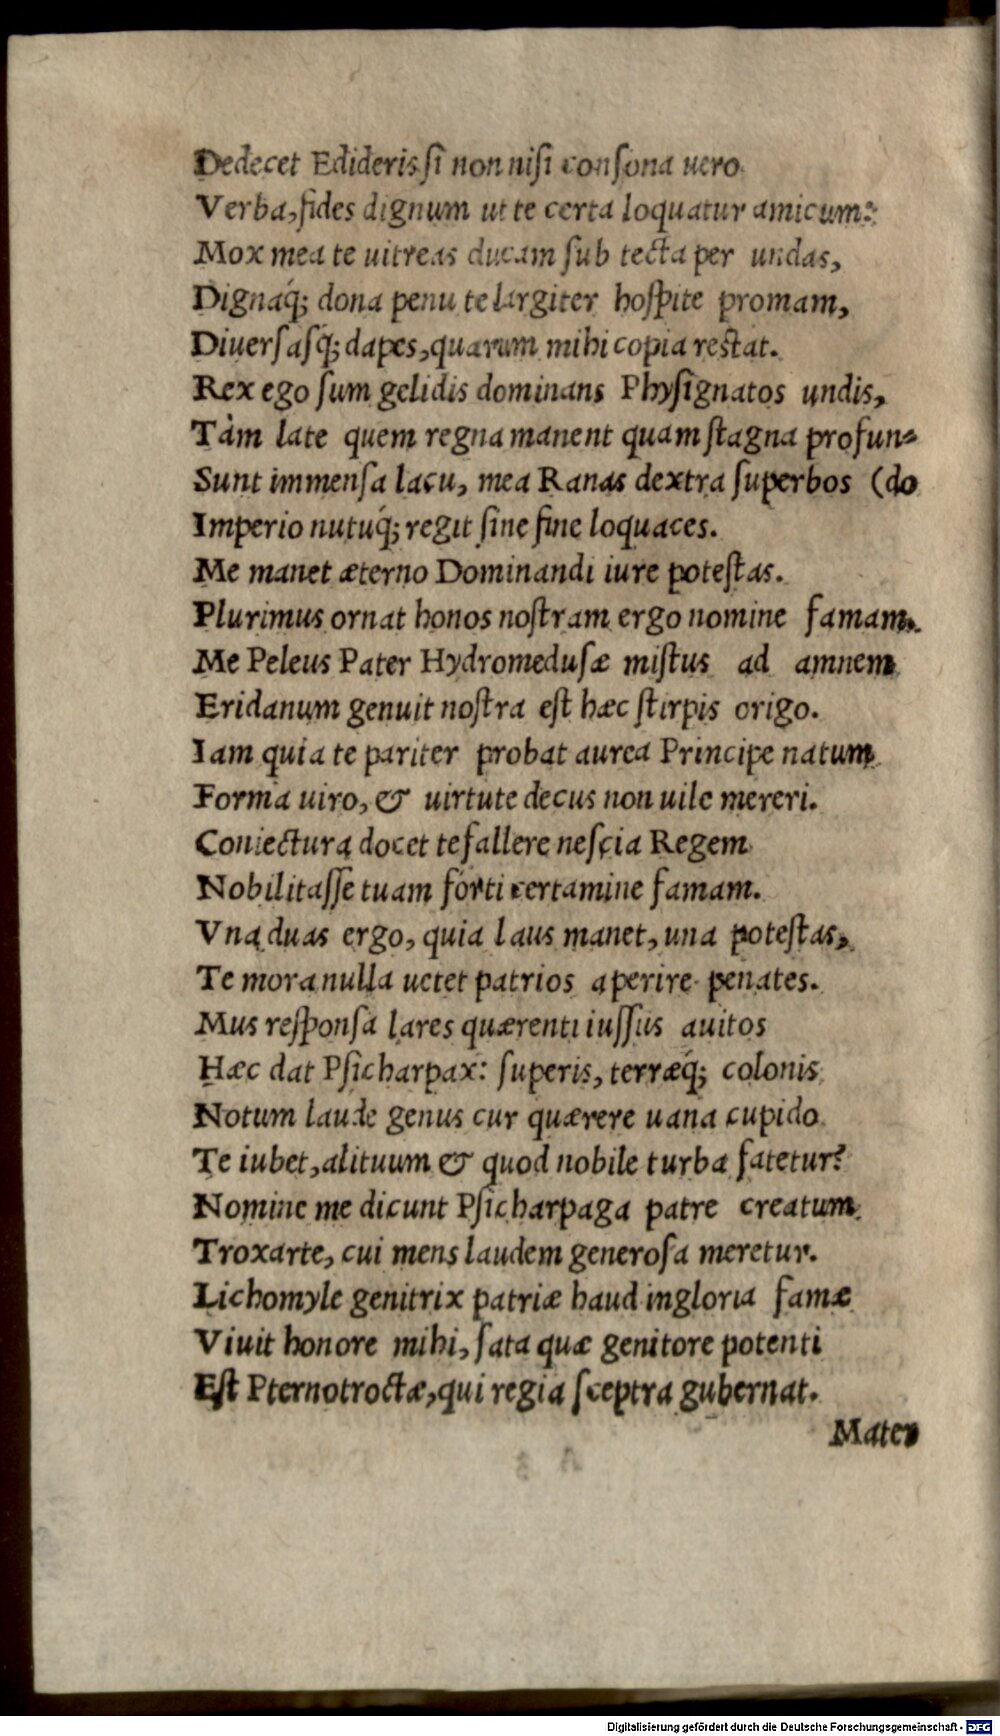 Dedecet Edideris ſi non niſi conſona uero
Verba, fides dignum ut te certa loquatur amicum:
Mox mea te uitreas ducam ſub tecta per undas,
Dignaq́; dona penu te largiter hoſpite promam,
Diuerſaſq́; dapes, quarum mihi copia reſtat.
Rex ego ſum gelidis dominans Phyſignatos undis,
Tàm late quem regna manent quam ſtagna profun-
Sunt immenſa lacu, mea Ranas dextra ſuperbos (do
Imperio nutuq́; regit ſine fine loquaces.
Me manet æterno Dominandi iure poteſtas.
Plurimus ornat honos noſtram ergo nomine famam.
Me Peleus Pater Hydromeduſæ miſtus ad amnem
Eridanum genuit noſtra eſt hæc ſtirpis origo.
Iam quia te pariter probat aurea Principe natum
Forma uiro, & uirtute decus non uile mereri.
Coniectura docet te fallere neſcia Regem
Nobilitaſſe tuam forti certamine famam.
Vna duas ergo, quia laus manet, una poteſtas,
Te mora nulla uetet patrios aperire penates.
Mus reſponſa lares quærenti iuſſus auitos
Hæc dat Pſicharpax: ſuperis, terræq́; colonis
Notum laude genus cur quærere uana cupido
Te iubet, alituum & quod nobile turba fatetur?
Nomine me dicunt Pſicharpaga patre creatum
Troxarte, cui mens laudem generoſa meretur.
Lichomyle genitrix patriæ haud ingloria famæ
Viuit honore mihi, ſata quæ genitore potenti
Eſt Pternotroctæ, qui regia ſceptra gubernat.
Mater
Digitalisierung gefördert durch die Deutsche Forschungsgemeinschaft - DFG